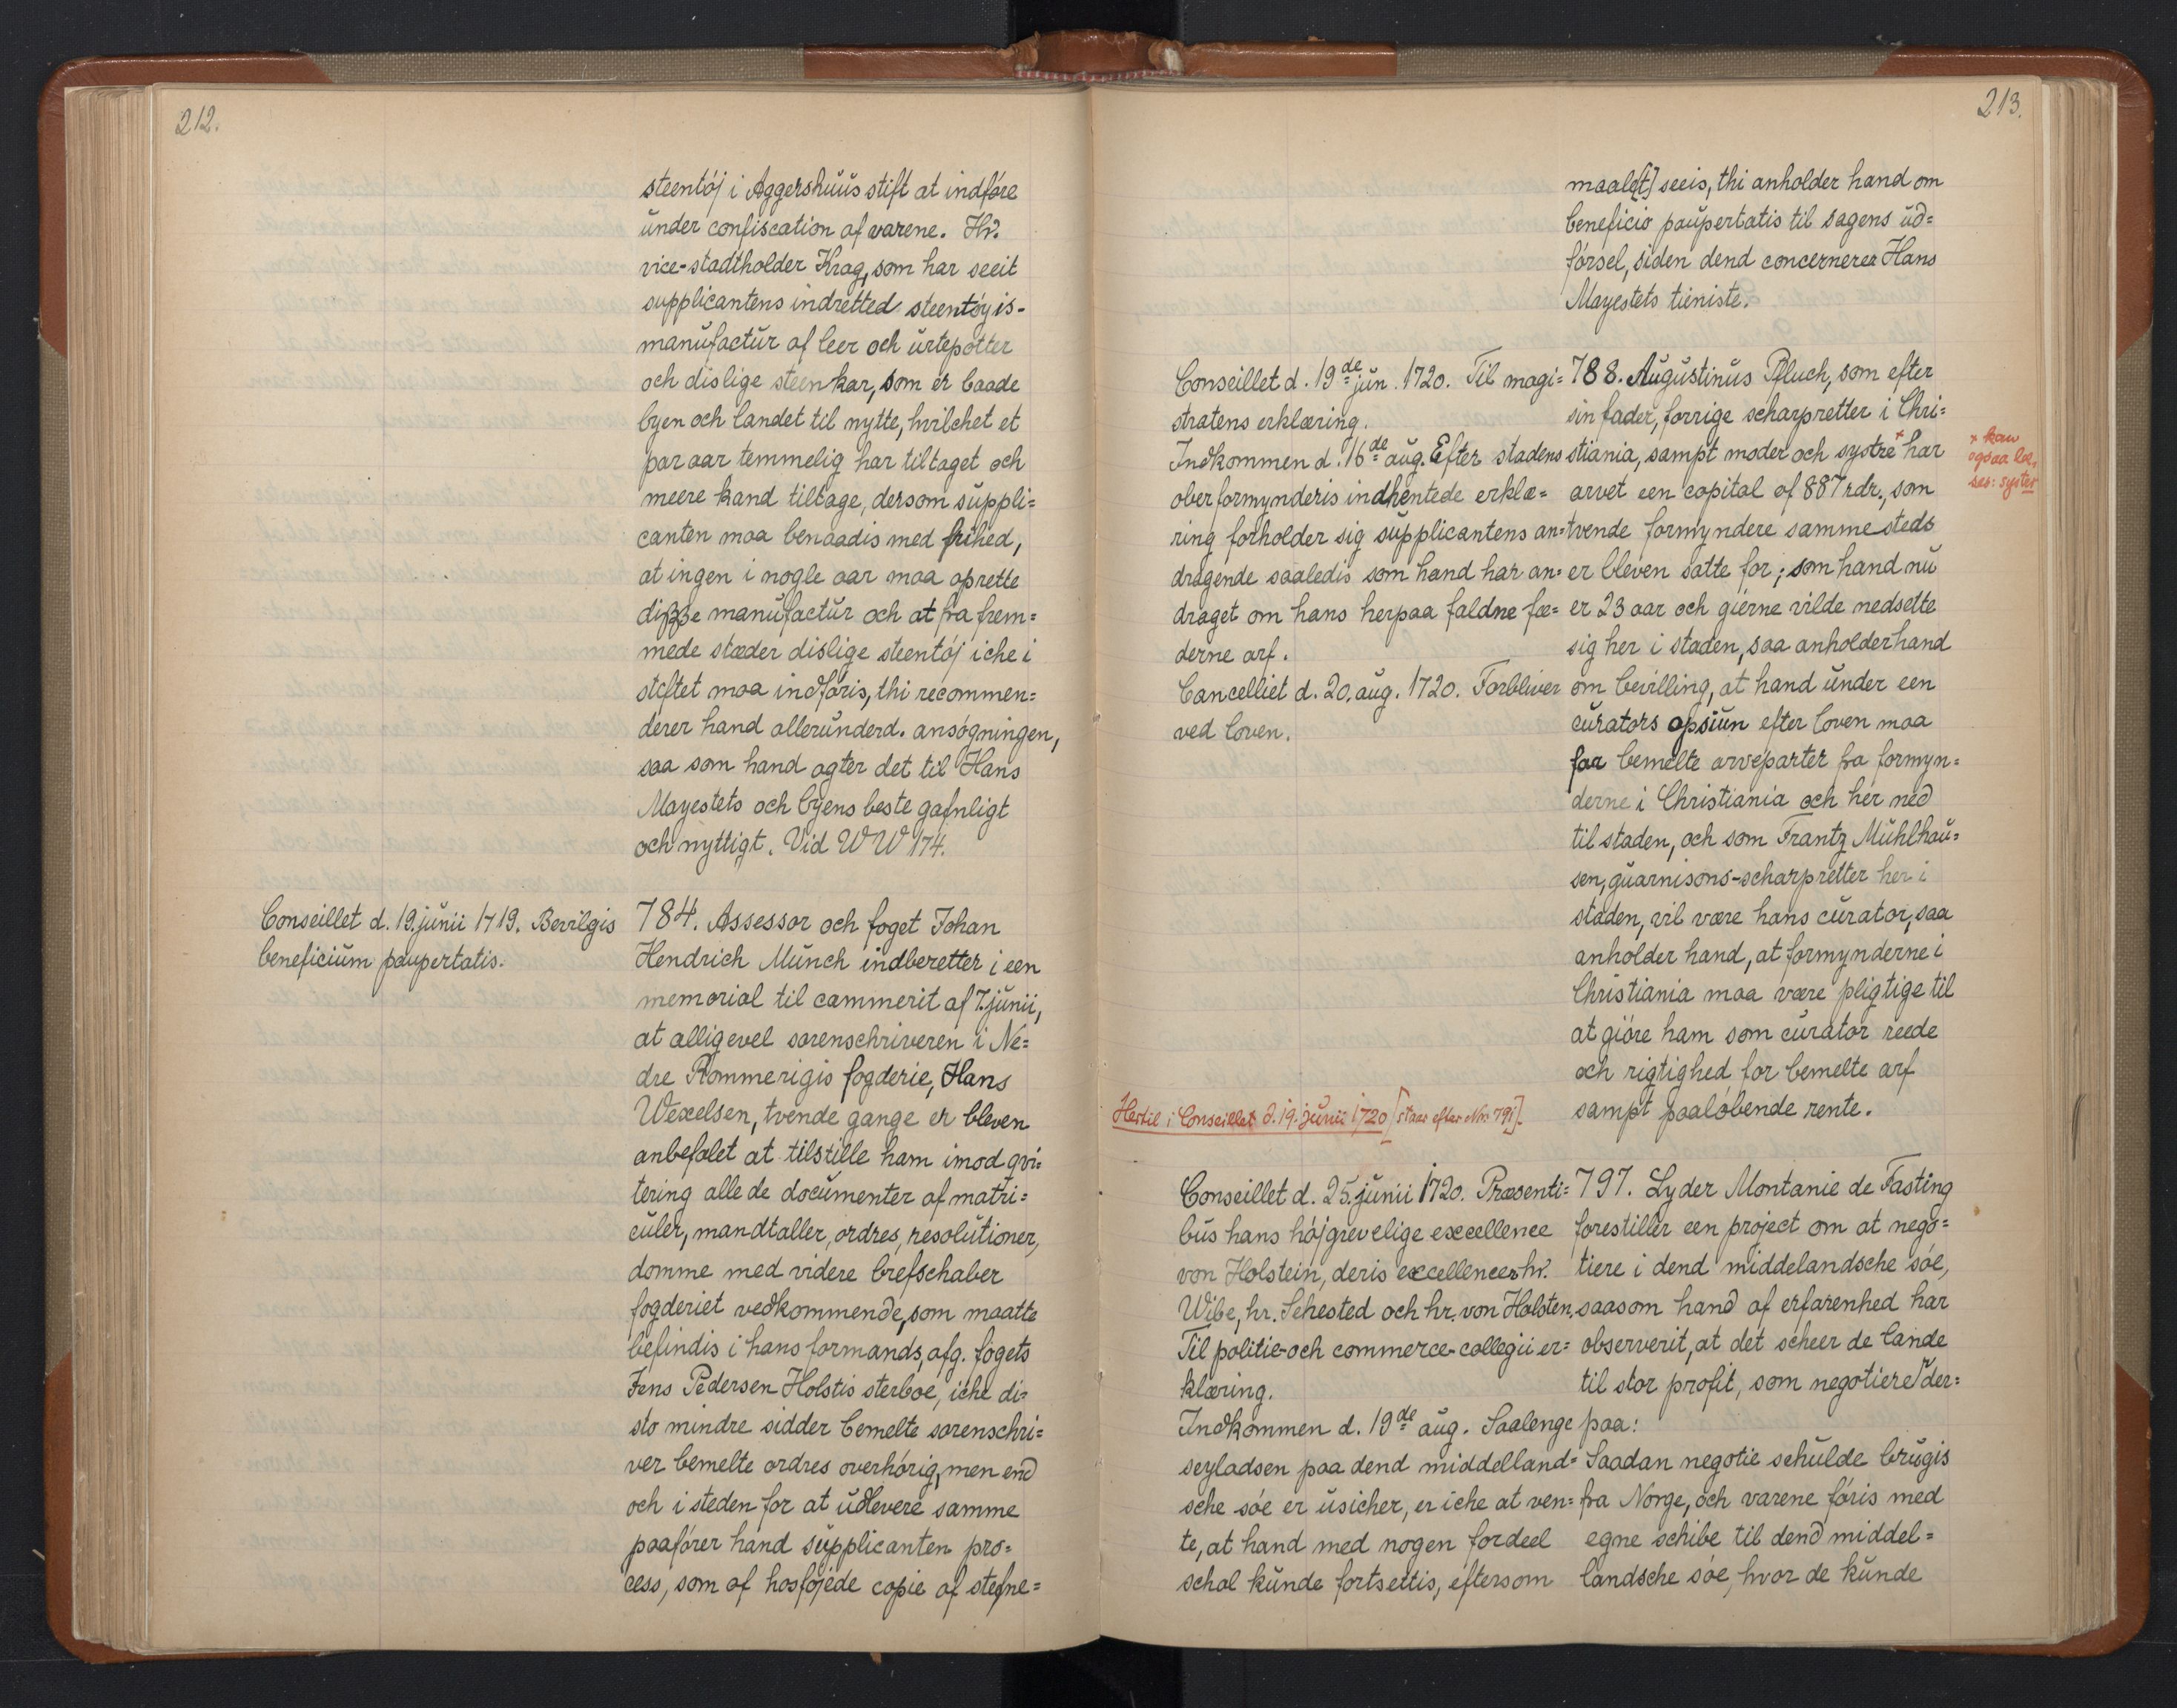 212.
steentöj i Aggershuus stift at indföre
under confiscation af varene. Hr.
vice-stadtholder Krag, som har seeit
supplicantens indretted steentöyis-
manufactur af leer och urtepotter
och dislige steenkar, som er baade
byen och landet til nytte, hvilchet et
par aar temmelig har tiltaget och
meere kand tiltage, dersom suppli=
canten maa benaadis med frihed,
at ingen i nogle aar maa oprette
disse manufactur och at fra frem=
mede stæder dislige steentöj iche i
stiftet maa indföris, thi recommen=
derer hand allerunderd. ansögningen,
saa som hand agter det til Hans
Mayestets och byens beste gafnligt
och nyttigt. Vid WW 174.
Conseillet d. 19. junii 1719. Bevilgis
beneficium paupertatis.
784. Assessor och foget Johan
Hendrich Munch indberetter i een
memorial til cammerit af 7. junii,
at alligevel sorenschriveren i Ne=
dre Rommerigis fogderie, Hans
Wexelsen, tvende gange er bleven
anbefalet at tilstille ham imod qvi=
tering alle de documenter af matri=
culer, mandtaller, ordres, resolutioner,
domme med videre brefschaber
fogderiet vedkommende, som maatte
befindis i hans formands, afg. fogets
Jens Pedersen Holstis sterboe, iche di=
sto mindre sidder bemelte sorenschri=
ver bemelte ordres overhörig, men end
och i steden for at udlevere samme
paaförer hand supplicanten pro=
cess, som af hosföjede copie af stefne=
213.
maale[t] seeis, thi anholder hand om
beneficio paupertatis til sagens ud=
försel, siden dend concernerer Hans
Mayestets tieniste.
Conseillet d. 19de jun. 1720. Til magi=
stratens erklæring.
Indkommen d. 16de aug. Efter stadens
oberformynderis indhentede erklæ=
ring forholder sig supplicantens an=
dragende saaledis som hand har an=
draget om hans herpaa faldne fæ=
derne arf.
Cancelliet d. 20. aug. 1720. Forbliver
ved loven.
788. Augustinus Pfluch, som efter
sin fader, forrige scharpretter i Chri=
stiania, sampt moder och systre × har
arvet een capital af 887 rdr., som
tvende formyndere sammesteds
er bleven satte for; som hand nu
er 23 aar och gierne vilde nedsette
sig her i staden, saa anholder hand
om bevilling, at hand under een
curators opsiun efter loven maa
faa bemelte arveparter fra formyn=
derne i Christiania och her ned
til staden, och som Frantz Mühlhau=
sen, guarnisons-scharpretter her i
staden, vil være hans curator, saa
anholder hand, at formynderne i
Christiania maa være pligtige til
at giöre ham som curator reede
och rigtighed for bemelte arf
sampt paalöbende rente.
× kan
ogsaa læ,
ses: syster
Hertil i Conseillet d. 19. junii 1720 [staar efter No. 791].
Conseillet d. 25. junii 1720. Præsenti=
bus hans höjgrevelige excellence
von Holstein, deris excellencer hr.
Wibe, hr. Sehested och hr. von Holsten.
Til politie- och commerce-collegii er=
klæring.
Indkommen d. 19de aug. Saalenge
seyladsen paa dend middelland=
sche söe er usicher, er iche at ven=
te, at hand med nogen fordeel
schal kunde fortsettis, eftersom
797. Lyder Montanie de Fasting
forestiller een project om at nego=
tiere i dend middelandsche söe,
saasom hand af erfarenhed har
observerit, at det scheer de lande
til stor profit, som negotierer der=
paa:
Saadan negotie schulde brugis
fra Norge, och varene föris med
egne schibe til dend middel=
landsche söe, hvor de kunde